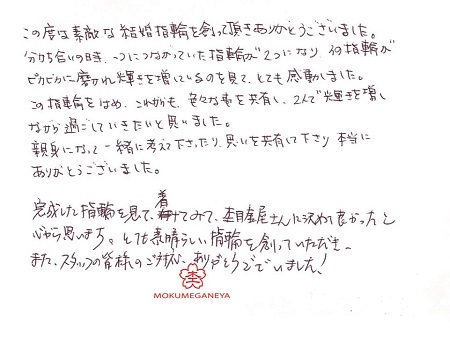 この度は素敵な結婚指輪を創って頂きありがとうございました。
分かち合いの時、一つにつながっていた指輪が2つになり、指輪が
ピカピカに磨かれ輝きを増しているのを見て、とても感動しました。
この指輪をはめ、これからも、色々な事を共有し、2人で輝きを増し
ながら過ごしていきたいと思いました。
親身になって一緒に考えて下さったり、思いを共有して下さり本当に
ありがとうございました。
完成した指輪を見て、着けてみて、杢目金屋さんに決めて良かったと
心から思います。とても素晴らしい指輪を創っていただき、
また、スタッフの皆様のご対応、ありがとうございました!
MOKUMEGANEYA